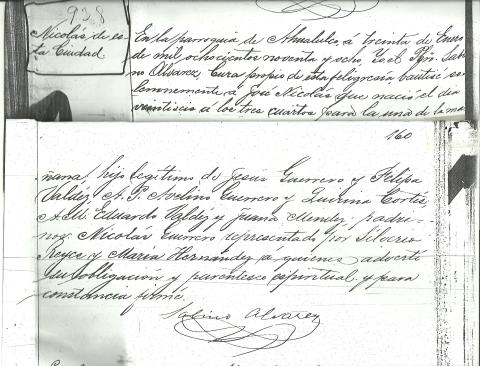 938
Nicolás de es-
ta Ciudad.
En la parroquia de Ahualulco, á treinta de Enero
de mil ochocientos noventa y ocho, Yo el Pbro. Sabi-
no Alvarez, Cura propio de esta feligresía bauticé so-
lemnemente á José Nicolás que nació el dia
veintiseis á los tres cuartos para la una de la ma-
160
ñana, hijo legítimo de Jesús Guerrero y Felipa
Valdéz. A. P. Avelino Guerrero y Quirina Cortés,
A. M. Eduardo Valdéz y Juana Mendez, padri-
nos Nicolás Guerrero representado por Silverio
Reyes y María Hernández a quienes advertí
su obligación y parentesco espiritual, y para
constancia firmé.
Sabino Alvarez